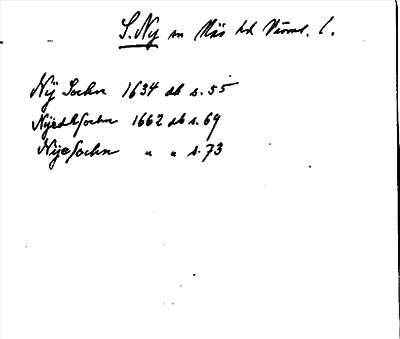 S. Ny sn Näs hd Värml. l.
Nÿ Sochn 1634 db s. 55
Nyedhsochn 1662 db s. 69
Nÿesochn " " s. 73